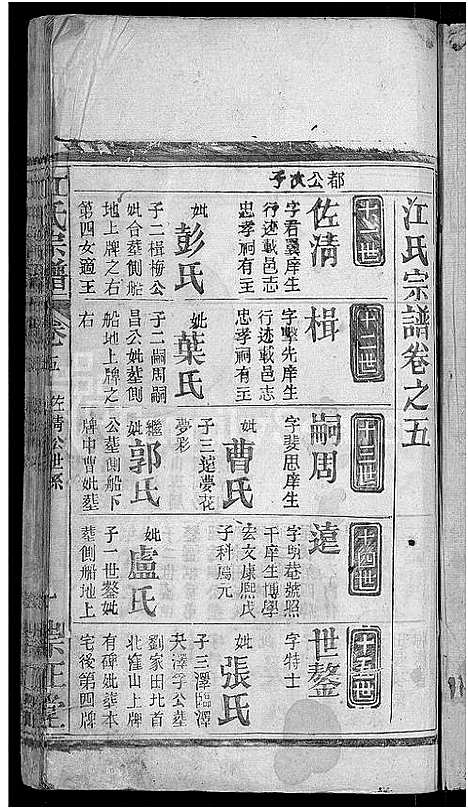 江氏宗譜卷之五
都公次子
十一世
佐清
字君翼庠生
行迹載邑志
忠孝祠有主
妣彭氏
子二楫梅公
妣合塟側船
地上牌之右
第四女適王
十二世
楫
字擊先庠生
行迹載邑志
忠孝祠有主
妣葉氏
子二嗣周嗣
昌公妣塟側
船地上牌之
右
十三世
嗣周
字斐思庠生
妣曹氏
子三遠夢花
夢彩
繼妣郭氏
公塟側船下
牌中曹妣塟
十四世
遠
字明菴號照
千庠生博學
玄文康熙戊
子科
妣盧氏
子一世鏊妣
塟側船地上
十五世
世鏊
字特士
妣張氏
子三澤臨澤
夬澤孚公塟
劉家田北首
北窪山上牌
有碑妣塟本
宅後第四牌
江氏宗譜
卷之五
佐清公世系
一
崇正堂